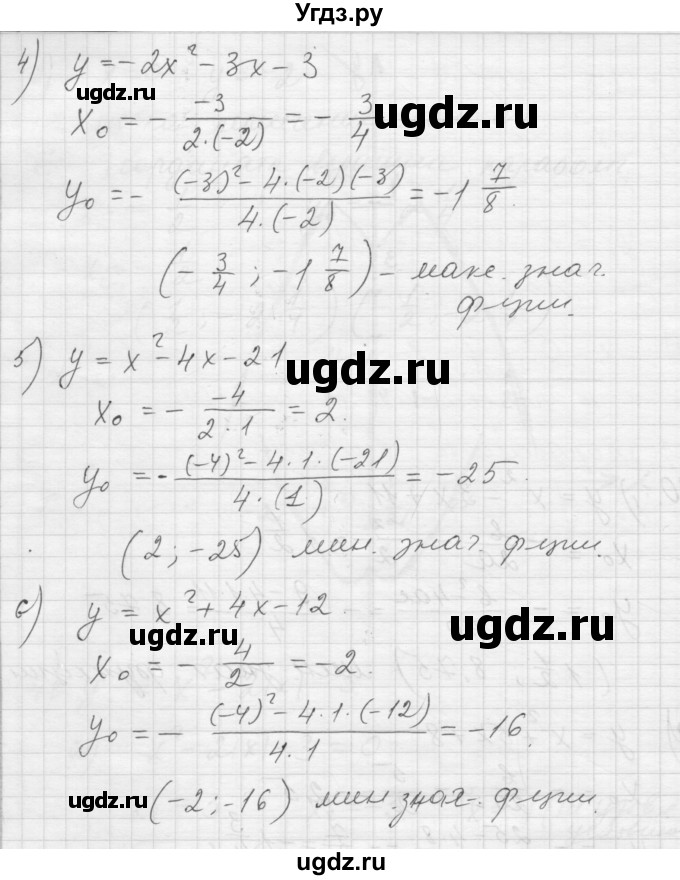 Угдз.ру
4) y = -2x² - 3x - 3
ugdz.ru
ugdz.ru
x₀ = - -3/(2·(-2)) = - 3/4
y₀ = - ((-3)² - 4·(-2)(-3))/(4·(-2)) = -1 7/8.
(- 3/4 ; -1 7/8) - макс. знач.
фции.
5) y = x² - 4x - 21
ugdz.ru
ugdz.ru
x₀ = - -4/(2·1) = 2.
y₀ = - ((-4)² - 4·1·(-21))/(4·(1)) = -25.
(2; -25) мин. знач. фции.
6) y = x² + 4x - 12.
ugdz.ru
ugdz.ru
x₀ = - 4/2 = -2.
y₀ = - ((-4)² - 4·1·(-12))/(4·1) = -16.
(-2; -16) мин. знач. фции.
ugdz.ru
ugdz.ru
ugdz.ru